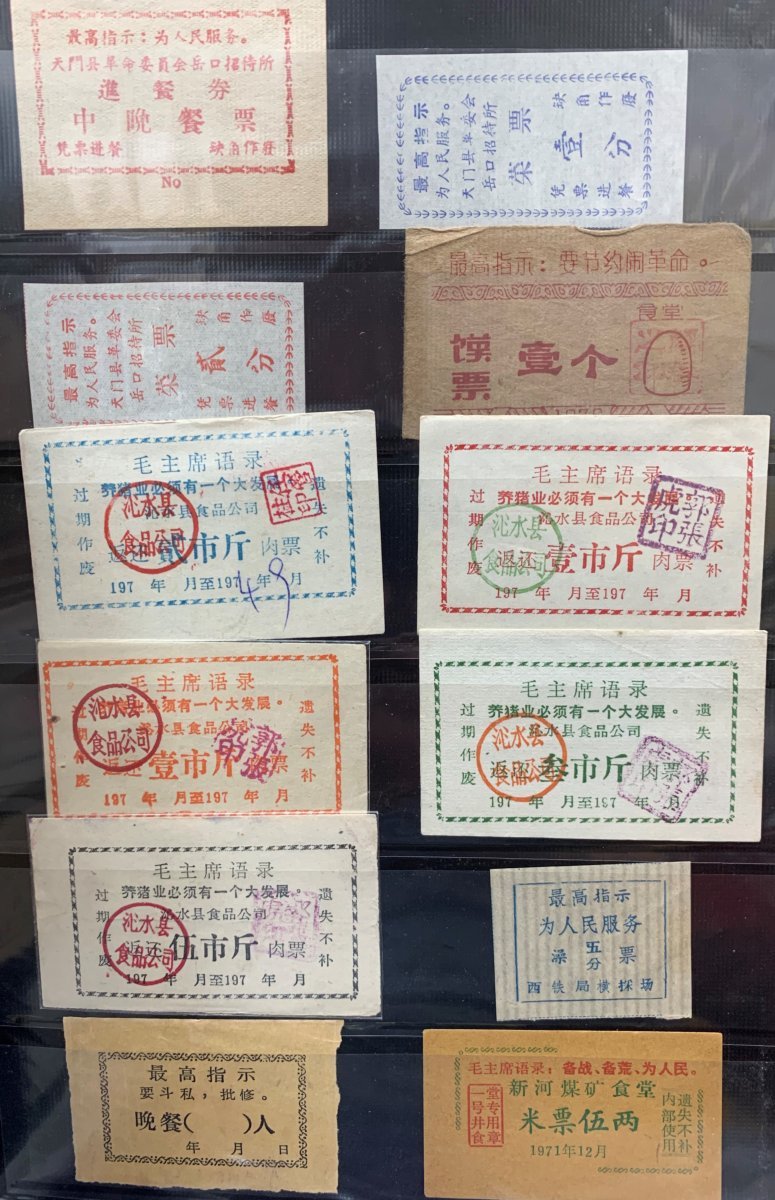 最高指示：为人民服务。
天门县革命委员会岳口招待所
進餐券
中晚餐票
凭票进餐 缺角作廢
No
最高指示
为人民服务。
天门县革委会
岳口招待所
菜票
壹分
缺角作廢
凭票进餐
最高指示：要节约闹革命。
食堂
馍票 壹个
最高指示
为人民服务。
天门县革委会
岳口招待所
菜票
贰分
缺角作廢
凭票进餐
毛主席语录
养猪业必须有一个大发展
沁水县食品公司
返还贰市斤肉票
197 年 月至197 年 月
过期作废
遗失不补
沁水县
食品公司
49
毛主席语录
养猪业必须有一个大发展
沁水县食品公司
返还壹市斤肉票
197 年 月至197 年 月
过期作废
遗失不补
沁水县
食品公司
郭張
虎印
毛主席语录
养猪业必须有一个大发展。
沁水县食品公司
返还壹市斤肉票
197 年 月至197 年 月
过期作废
遗失不补
沁水县
食品公司
郭張
毛主席语录
养猪业必须有一个大发展。
沁水县食品公司
返还叁市斤肉票
197 年 月至197 年 月
过期作废
遗失不补
沁水县
食品公司
毛主席语录
养猪业必须有一个大发展。
沁水县食品公司
返还伍市斤肉票
197 年 月至197 年 月
过期作废
遗失不补
沁水县
食品公司
最高指示
为人民服务
澡五分票
西铁局横探场
最高指示
要斗私，批修。
晚餐( )人
年 月 日
毛主席语录：备战、备荒、为人民。
新河煤矿食堂
米票伍两
1971年12月
一号井食堂专用章
内部使用
遗失不补